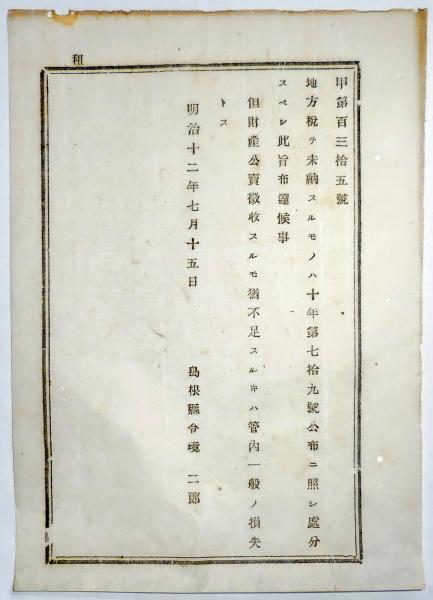 租
甲第百三拾五號
地方稅ヲ未納スルモノハ十年第七拾九號公布ニ照シ處分
スベシ此旨布達候事
但財產公賣徵收スルモ猶不足スルキハ管內一般ノ損失
トス
明治十二年七月十五日
島根縣令境二郎